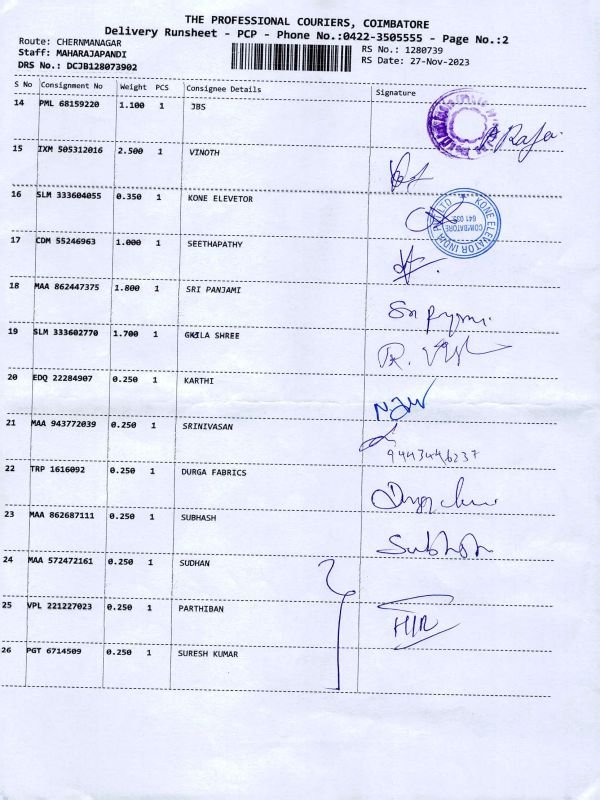 THE PROFESSIONAL COURIERS, COIMBATORE
Delivery Runsheet - PCP - Phone No.:0422-3505555 - Page No.:2
Route: CHERNMANAGAR RS No.: 1280739
Staff: MAHARAJAPANDI RS Date: 27-Nov-2023
DRS No.: DCJB128073902
S No Consignment No Weight PCS Consignee Details Signature
14 PML 68159220 1.100 1 JBS Raja
15 IXM 505312016 2.500 1 VINOTH
16 SLM 333604055 0.350 1 KONE ELEVETOR KONE ELEVATOR INDIA LTD COIMBATORE 641 035
17 CDM 55246963 1.000 1 SEETHAPATHY
18 MAA 862447375 1.800 1 SRI PANJAMI Sri
19 SLM 333602770 1.700 1 SHREE
20 EDQ 22284907 0.250 1 KARTHI
21 MAA 943772039 0.250 1 SRINIVASAN
9443446237
22 TRP 1616092 0.250 1 DURGA FABRICS
23 MAA 862687111 0.250 1 SUBHASH Subhash
24 MAA 572472161 0.250 1 SUDHAN
25 VPL 221227023 0.250 1 PARTHIBAN
26 PGT 6714509 0.250 1 SURESH KUMAR